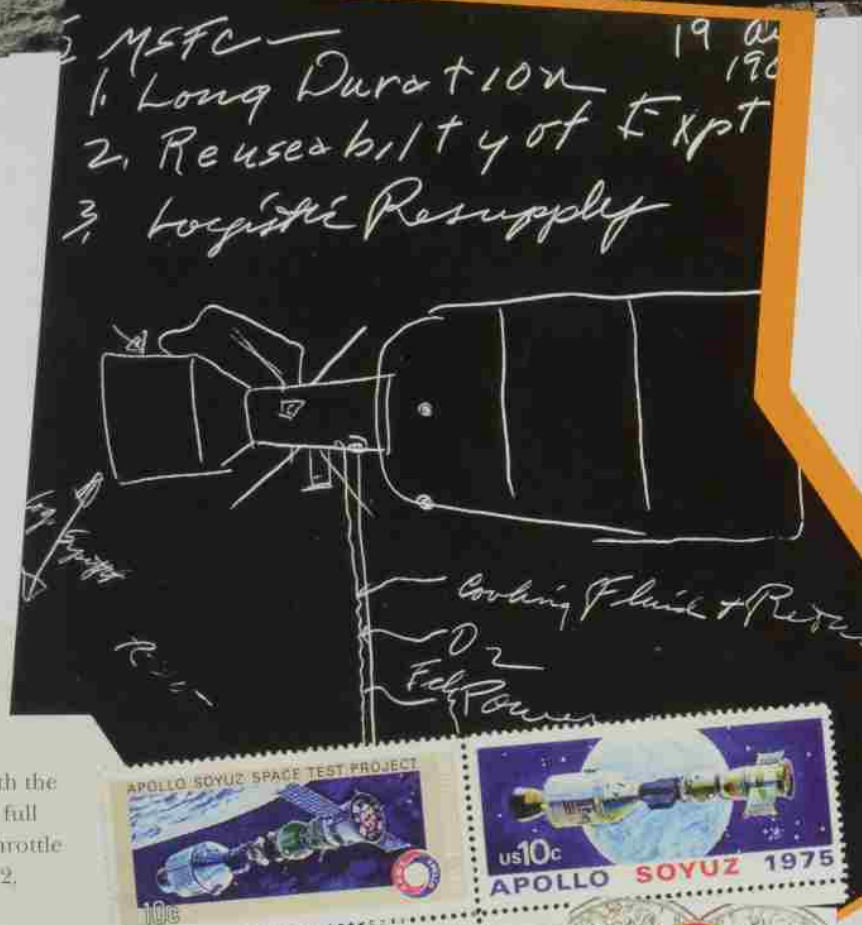 MSFC —
19
1. Long Duration
2. Reuseabilty of Expt
3. Logistic Resupply
Cooling Fluid +
O2
Power
th the
full
hrottle
2,
APOLLO SOYUZ SPACE TEST PROJECT
10c
US10c
APOLLO SOYUZ 1975